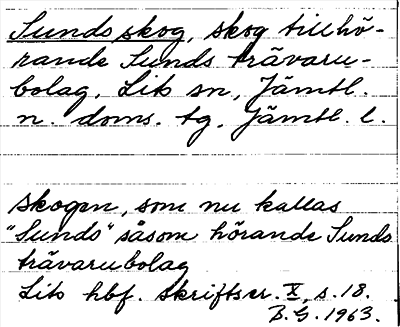 Sundsskog, skog tillhö-
rande Sunds trävaru-
bolag, Lits sn, Jämtl.
n. doms. tg, Jämtl. l.
skogen, som nu kallas
"Sunds" såsom hörande Sunds
trävarubolag
Lits hbf. skriftser. X, s. 18.
B. G. 1963.